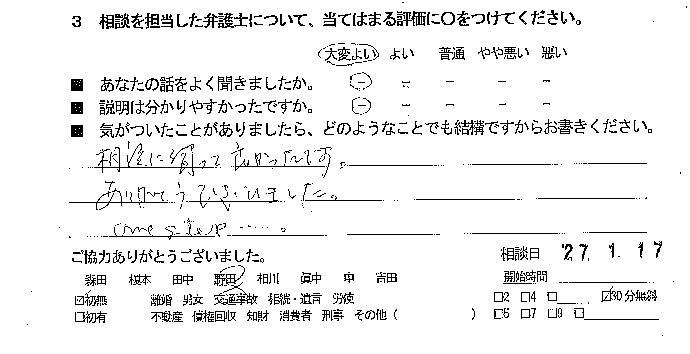 3 相談を担当した弁護士について、当てはまる評価に〇をつけてください。
大変よい よい 普通 やや悪い 悪い
■ あなたの話をよく聞きましたか。 - - - - -
■ 説明は分かりやすかったですか。 - - - - -
■ 気がついたことがありましたら、どのようなことでも結構ですからお書きください。
相談に乗って良かったです。
ありがとうございました。
ご協力ありがとうございました。
相談日 '27. 1. 17
森田 榎本 田中 野田 相川 眞中 申 吉田
開始時間
☑初無 離婚 男女 交通事故 相続・遺言 労使 □2 □4 □ ☑30分無料
□初有 不動産 債権回収 知財 消費者 刑事 その他 ( ) □5 □7 □9 □